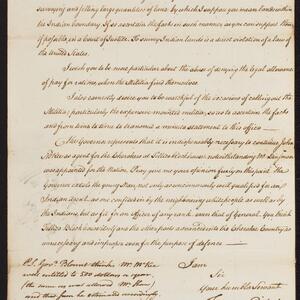 surveying and selling large quantities of land by which I suppose you mean lands within
the Indian boundary. If so ascertain the facts in such manner as you can support them
if possible, in a Court of Justice. To survey Indian lands is a direct violation of a law of
the United States.
I wish you to be most particular about the abuse of denying the legal allowance
of pay for rations, when the Militia find themselves.
I also earnestly desire you to be watchful of the occasions of calling out the
Militia; particularly the expensive mounted militia, so as to ascertain the facts
and from time to time to transmit a minute statement to this office
The Governor represents that it is indispensably necessary to continue John
as agent for the Cherokees at Tellico blockhouse, notwithstanding Mr.
was appointed for the Nation. Pray give me your opinion fully on this point. The
Governor extols the young man, not only as eminently well qualified for an
Indian agent, as one confided in by the neighbouring white people as well as
by the Indians, but as fit for an officer of any rank even that of General.
Tellico Blockhouse and the other posts towards the Cherokee Country as
unnecessary and improper even for the purpose of defence
I am
Sir
Your humble Servant
P.S. Govr. Blount thinks Mr. McKee
were entitled to 500 dollars a year
(the sum was allowed Mr. Shaw)
and that sum be estimated accordingly.